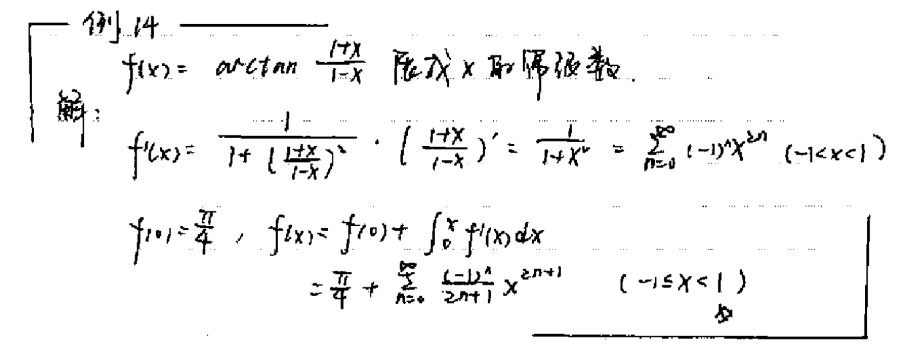 例14
f(x) = arctan (1+x)/(1-x) 展成 x 的幂级数.
解:
f'(x) = 1/(1+((1+x)/(1-x))²) · ((1+x)/(1-x))' = 1/(1+x²) = ∑_{n=0}^{∞} (-1)ⁿx²ⁿ (-1<x<1)
f(0) = π/4 , f(x) = f(0) + ∫₀ˣ f'(x)dx
= π/4 + ∑_{n=0}^{∞} (-1)ⁿ/(2n+1) x²ⁿ⁺¹ (-1≤x<1)